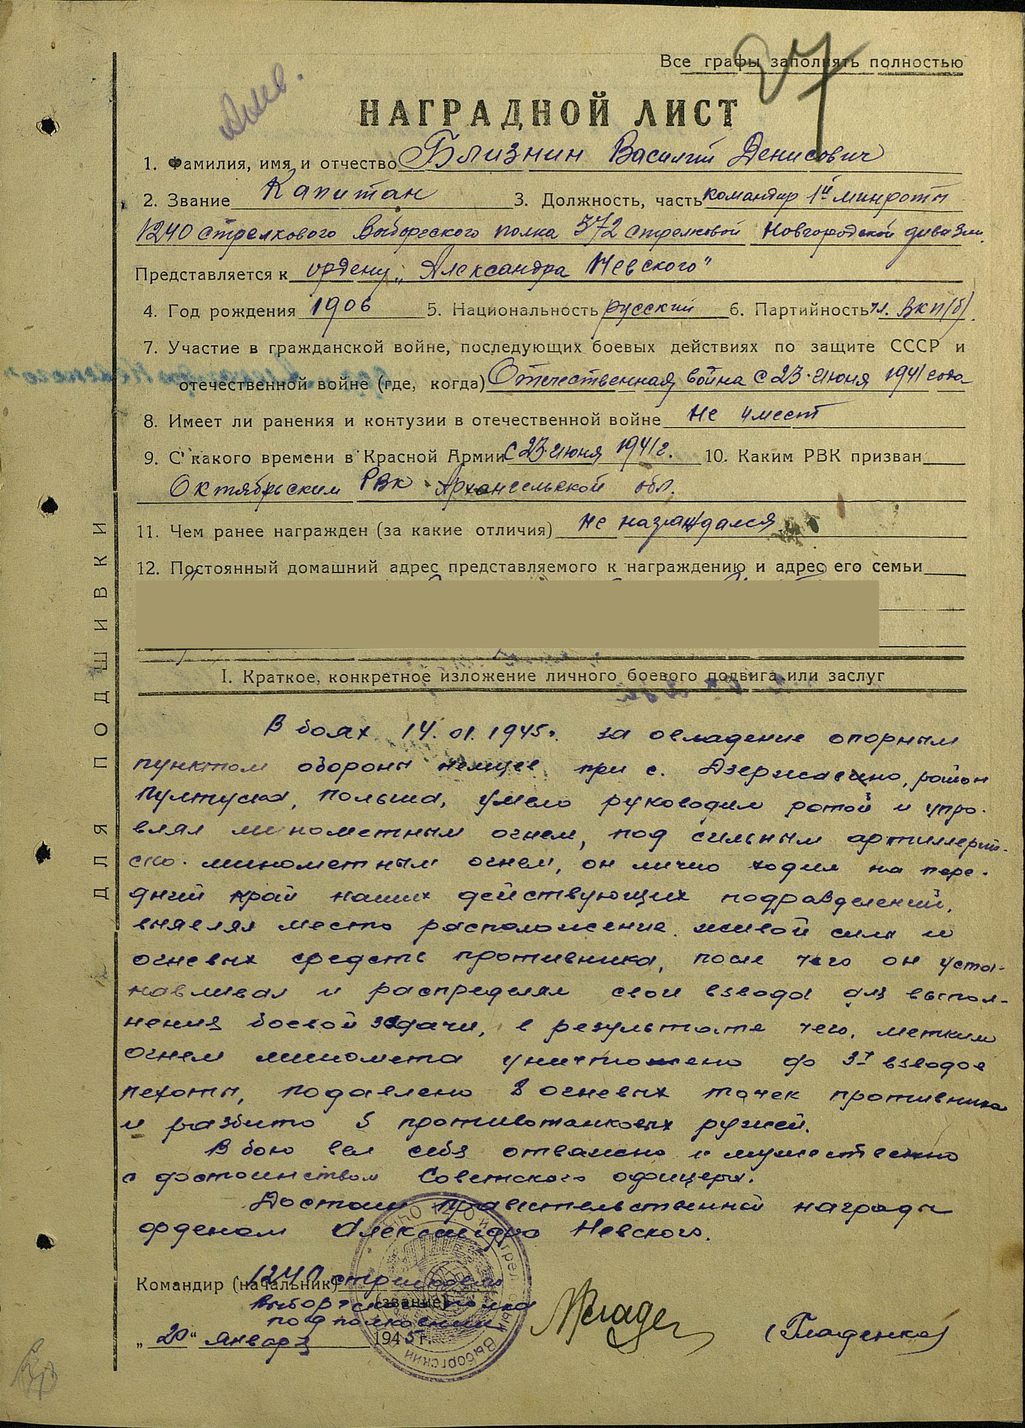 27
Все графы заполнять полностью
НАГРАДНОЙ ЛИСТ
1. Фамилия, имя и отчество Близнин Василий Денисович
2. Звание Капитан 3. Должность, часть командир 1й минроты
1240 стрелкового Выборгского полка 372 стрелковой Новгородской дивизии.
Представляется к ордену „Александра Невского"
4. Год рождения 1906 5. Национальность русский 6. Партийность чл. ВКП(б)
7. Участие в гражданской войне, последующих боевых действиях по защите СССР и
отечественной войне (где, когда) Отечественная война с 23 июня 1941 года
8. Имеет ли ранения и контузии в отечественной войне Не имеет
9. С какого времени в Красной Армии С 23 июня 1941 г. 10. Каким РВК призван
Октябрьским РВК Архангельской обл.
11. Чем ранее награжден (за какие отличия) Не награждался
12. Постоянный домашний адрес представляемого к награждению и адрес его семьи
I. Краткое, конкретное изложение личного боевого подвига или заслуг
В боях 14.01.1945г. за овладение опорным
пунктом обороны немцев при с. район
Пултуска, Польша, умело руководил ротой и упра-
влял минометным огнем, под сильным артиллерий-
ско-минометным огнем, он лично ходил на пере-
дний край наших действующих подразделений,
выявлял место расположение живой силы и
огневых средств противника, после чего он уста-
навливал и распределял свои взвода для выпол-
нения боевой задачи, в результате чего, метким
огнем миномета уничтожено до 3х взводов
пехоты, подавлено 8 огневых точек противника
и разбито 5 противотанковых ружей.
В бою вел себя отважно и мужественно
с достоинством Советского офицера.
Достоин правительственной награды
орденом Александра Невского.
Командир (начальник) 1240 стрелкового
Выборгского полка
(звание)
подполковник
„20" января 1945 г. (Гладенко)
ДЛЯ ПОДШИВКИ